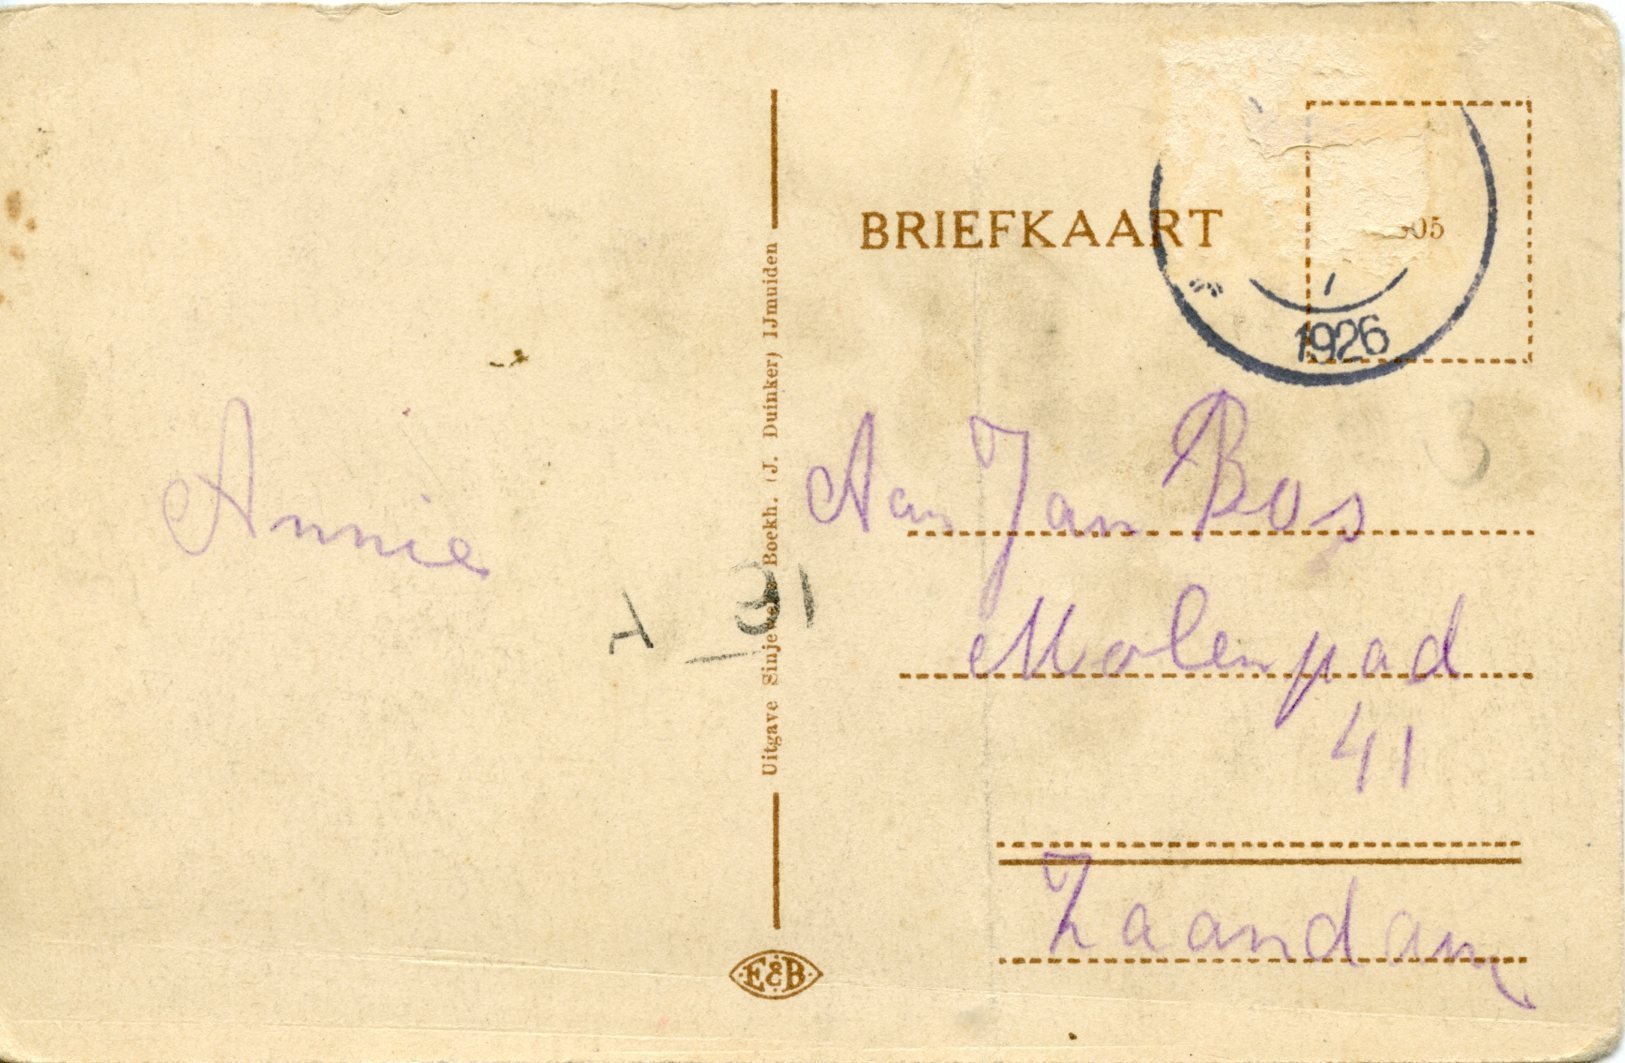 BRIEFKAART
05
1926
Annie
Aan Jan Bos
Molenpad
41
Zaandam
Boekh. (J. Duinker) IJmuiden
Uitgave
E&B